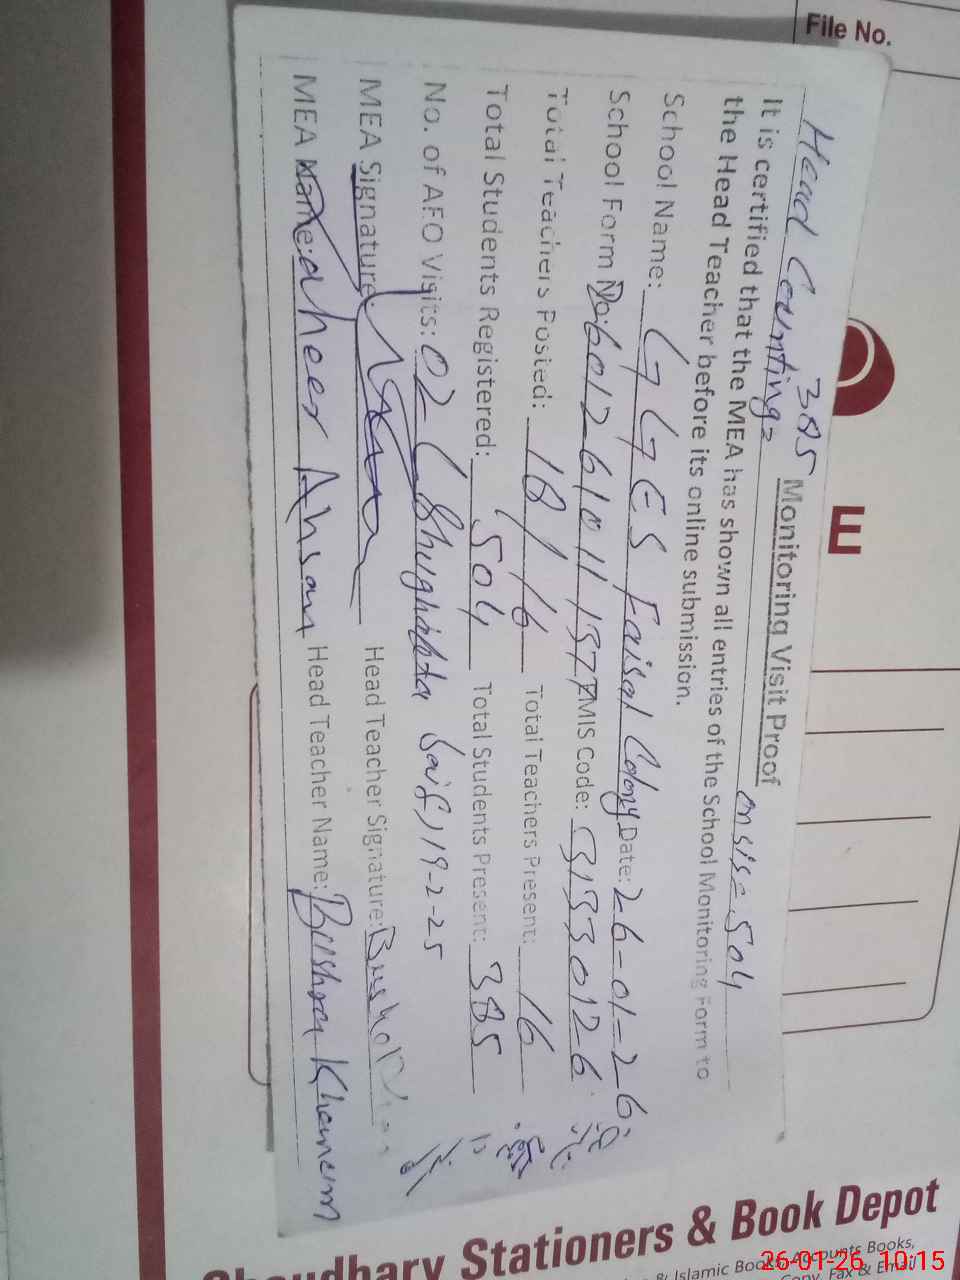 File No.
E
Head Counting = 385 Monitoring Visit Proof on sis = 504
It is certified that the MEA has shown all entries of the School Monitoring Form to
the Head Teacher before its online submission.
School Name: GGES Faisal Colony Date: 26-01-26
School Form No: 60126101115 EMIS Code: 31330126
Total Teachers Posted: 18/16 Total Teachers Present: 16
Total Students Registered: 504 Total Students Present: 385
No. of AEO Visits: 02 (Shughafta Saif) 19-2-25
MEA Signature Head Teacher Signature: Bushra
MEA Name: Zaheer Ahsan Head Teacher Name: Bushra Khanem
Chaudhary Stationers & Book Depot
& Islamic Books, Accounts Books,
Copy, Fax & Email
26-01-26 10:15